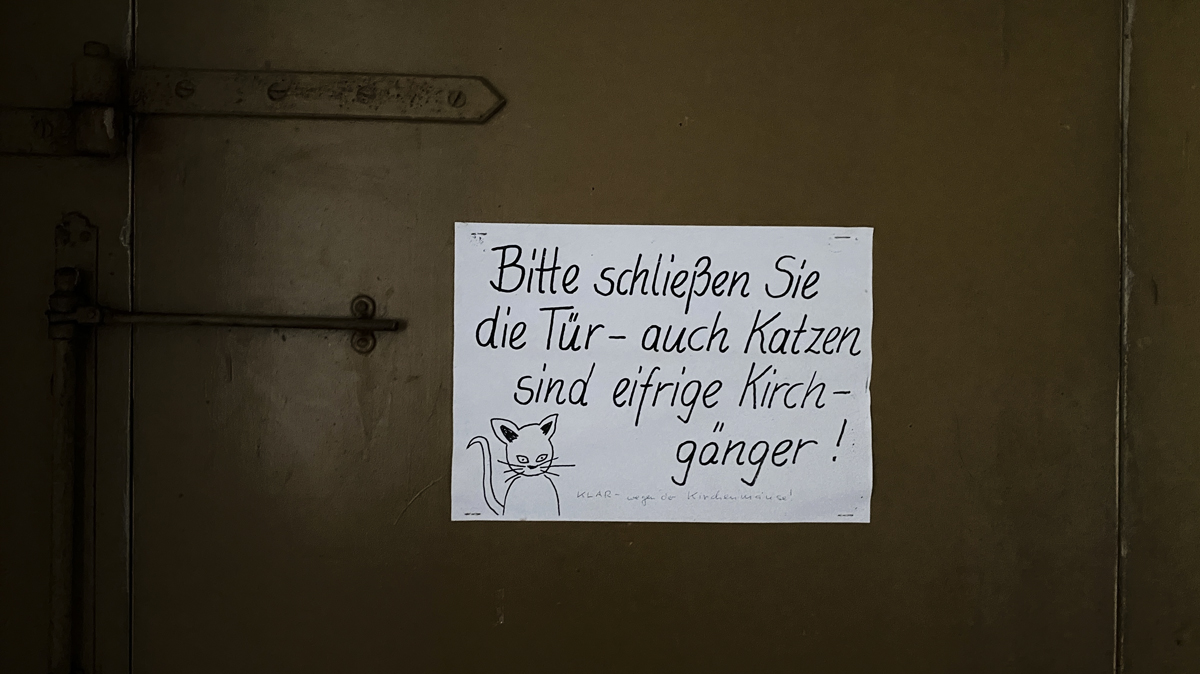 Bitte schließen Sie
die Tür - auch Katzen
sind eifrige Kirch-
gänger !
KLAR - wegen der Kirchenmäuse!